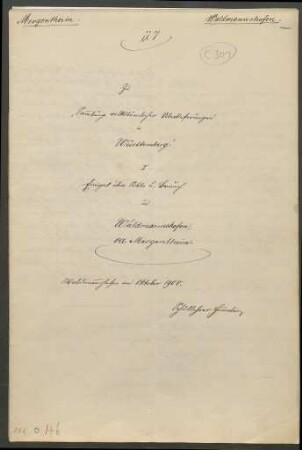 Mergentheim.
Waldmannshofen.
ü 7
C 307
Zu
"Sammlung volkstümlicher Überlieferungen
in
Württemberg."
I
Einiges über Sitte u. Brauch
in
Waldmannshofen
OA. Mergentheim.
Waldmannshofen im Oktober 1900.
Schullehrer